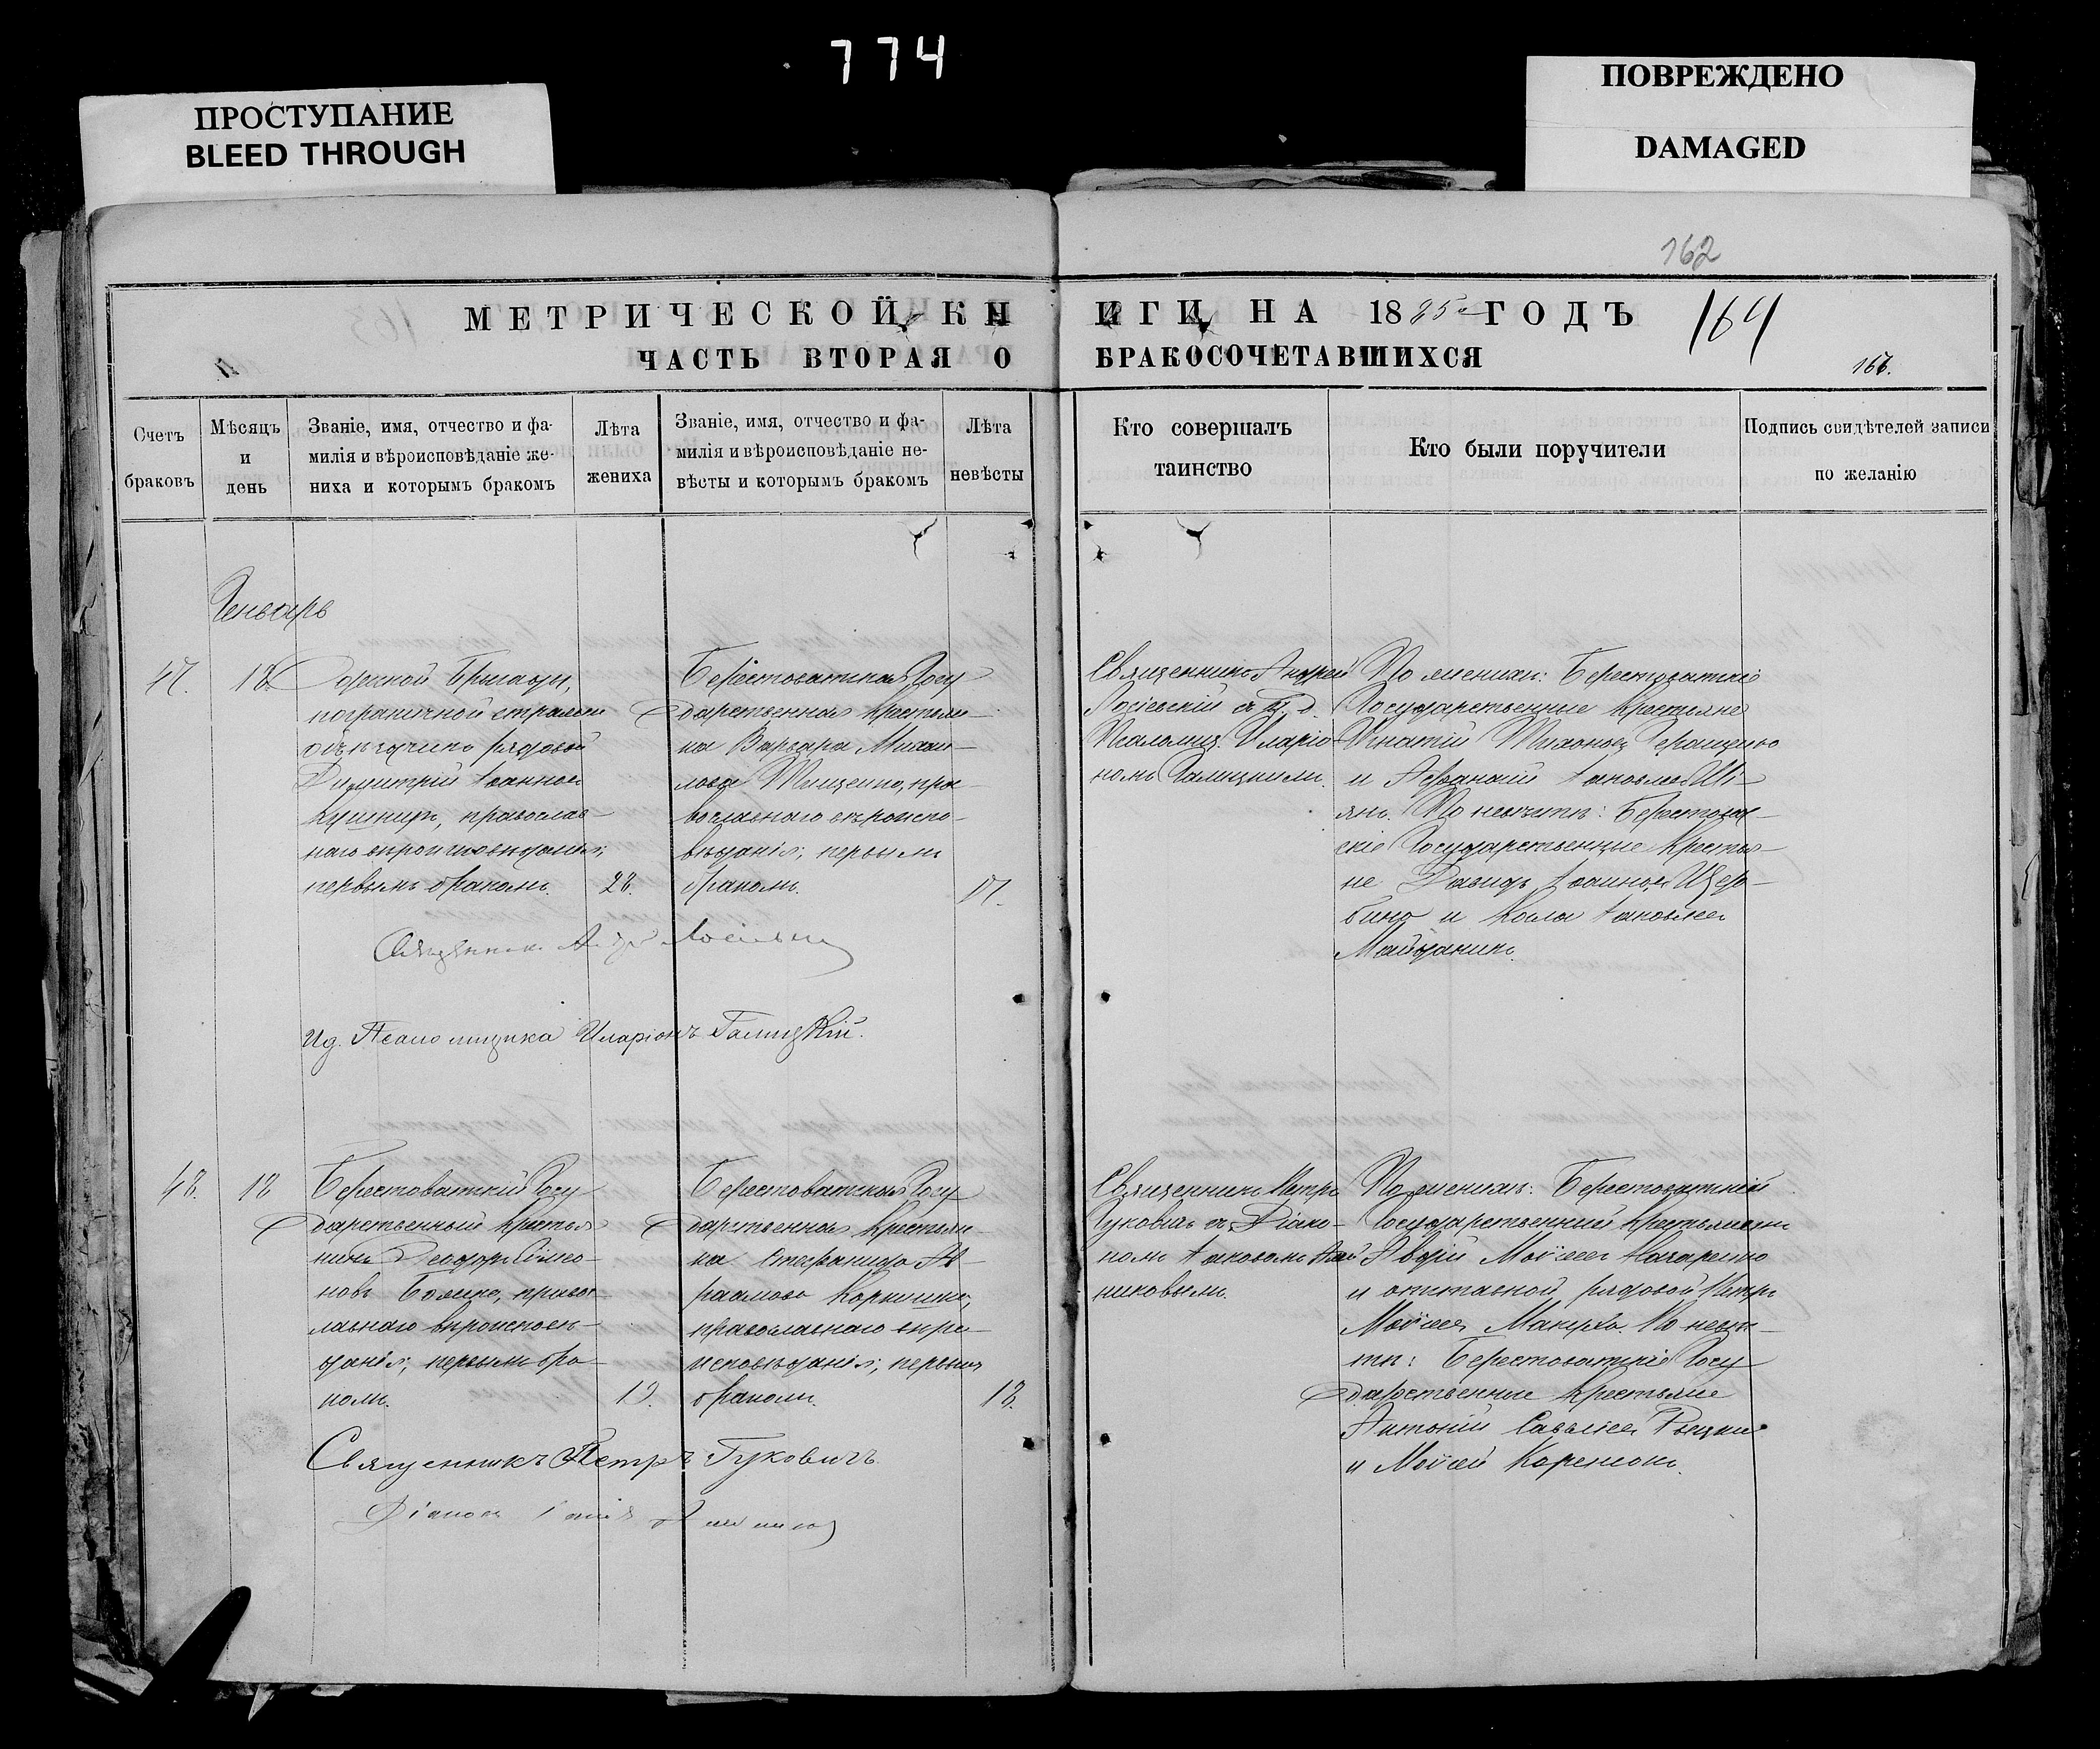 774
ПРОСТУПАНИЕ
BLEED THROUGH
ПОВРЕЖДЕНО
DAMAGED
162
МЕТРИЧЕСКОЙ КНИГИ НА 1885 ГОДЪ
164
ЧАСТЬ ВТОРАЯ О БРАКОСОЧЕТАВШИХСЯ
Счетъ
браковъ
Мѣсяцъ
и
день
Званіе, имя, отчество и фа-
милія и вѣроисповѣданіе же-
ниха и которымъ бракомъ
Лѣта
жениха
Званіе, имя, отчество и фа-
милія и вѣроисповѣданіе не-
вѣсты и которымъ бракомъ
Лѣта
невѣсты
Кто совершалъ
таинство
Кто были поручители
Подпись свидѣтелей записи
по желанію
Геньварь
47.
18.
бригады,
пограничной стражи
объѣздчикъ рядовой
Димитрій Іоанновъ
Кушниръ, православ-
наго вѣроисповѣданія;
первымъ бракомъ.
28.
Берестоватская Госу
дарственная крестьян-
ка Варвара Михаи-
лова Тищенко, пра-
вославнаго вѣроиспо-
вѣданія; первымъ
бракомъ.
17.
Священникъ Андрей
Лосіевскій съ и. д.
Псаломщ. Иларіо-
номъ Галицкимъ.
По женихѣ: Берестоватскіе
Государственные крестьяне
Игнатій Геращенко
и Афанасій Іаковлевъ Ші-
янъ. По невѣстѣ: Берестоват-
скіе Государственные крестья-
не Давидъ Іоанновъ Щер-
бина и Козма Іаковлевъ
Майданикъ.
Священник
Ид. Псаломщика Иларіонъ Галицкій.
48.
18
Берестоватскій Госу
дарственный крестья
нинъ Ѳеодоръ
новъ правос-
лавнаго вѣроисповѣ-
данія; первымъ бра-
комъ.
19.
Берестоватская Госу
дарственная крестьян-
ка Стефанида Ав-
раамова
православнаго вѣро-
исповѣданія; первымъ
бракомъ.
18.
Священникъ Петръ
Гуковичъ съ Діако-
номъ Іаковомъ
никовымъ.
По женихѣ: Берестоватскій
Государственный крестьянинъ
Авдій Моисеевъ Назаренко
и отставной рядовой Петръ
Моисеевъ Макуха. По невѣс-
тѣ: Берестоватскіе Госу
дарственные крестьяне
Антоній Савичевъ
и Моисей
Священникъ Петръ Гуковичъ
Діаконъ